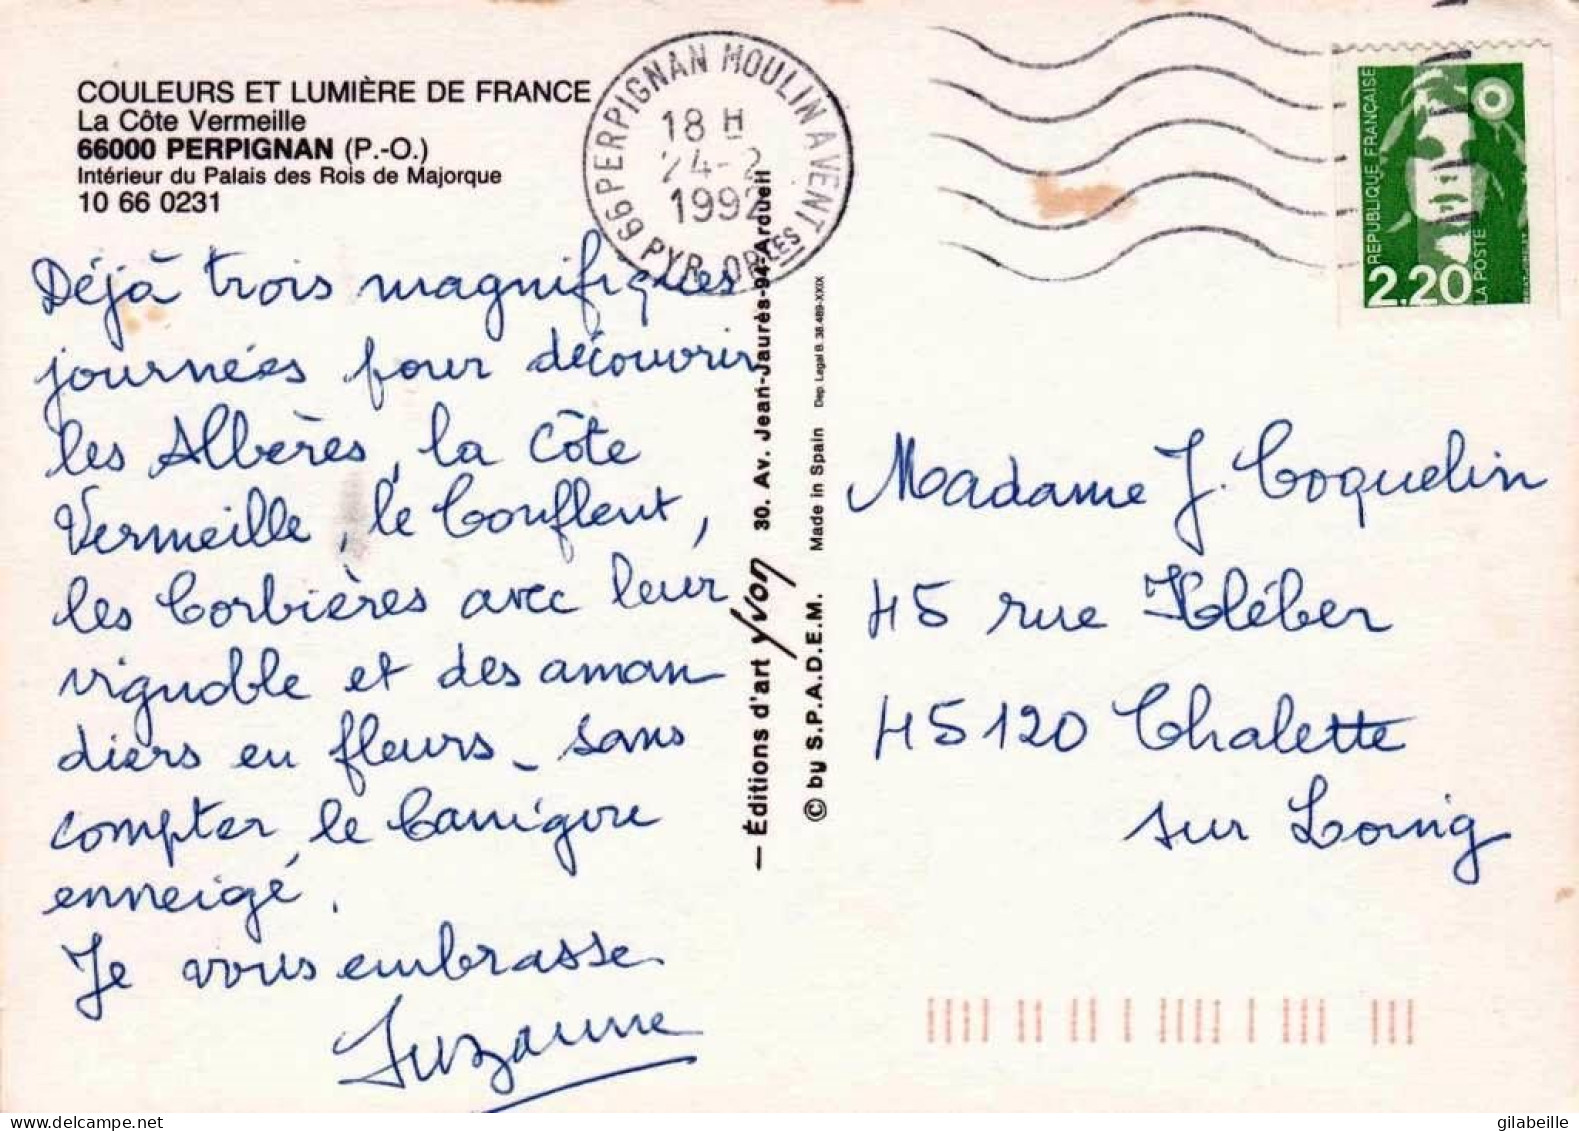 COULEURS ET LUMIÈRE DE FRANCE
La Côte Vermeille
66000 PERPIGNAN (P.-O.)
Intérieur du Palais des Rois de Majorque
10 66 0231
Déjà trois magnifiques
journées pour découvrir
les Albères, la Côte
Vermeille, le Conflent,
les Corbières avec leur
vignoble et des aman
diers en fleurs _ sans
compter le Canigou
enneigé.
Je vous embrasse
Suzanne
66 PERPIGNAN MOULIN A VENT
18 H
24-2
1992
PYR. ORLES
— Éditions d'art yvon 30. Av. Jean-Jaurès-94-Arcueil
© by S.P.A.D.E.M. Made in Spain Dep. Legal B. 38.489-XXIX
REPUBLIQUE FRANÇAISE
2.20
LA POSTE
Madame J. Coquelin
45 rue Kléber
45120 Chalette
sur Loing
gilabeille